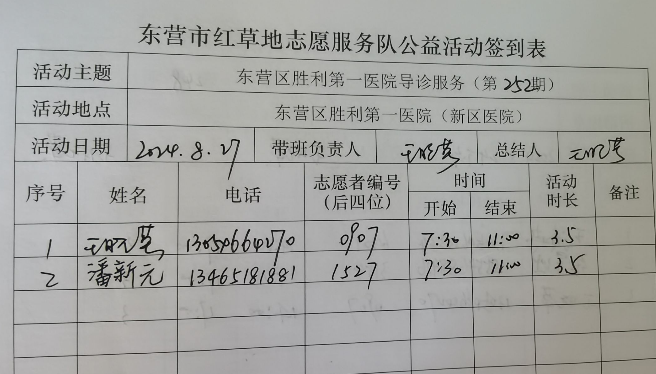 东营市红草地志愿服务队公益活动签到表
活动主题 东营区胜利第一医院导诊服务（第252期）
活动地点 东营区胜利第一医院（新区医院）
活动日期 2024.8.27 带班负责人 总结人
序号 姓名 电话 志愿者编号（后四位） 时间 开始 结束 活动时长 备注
1 13054664270 0907 7:30 11:00 3.5
2 潘新元 13465181881 1527 7:30 11:00 3.5